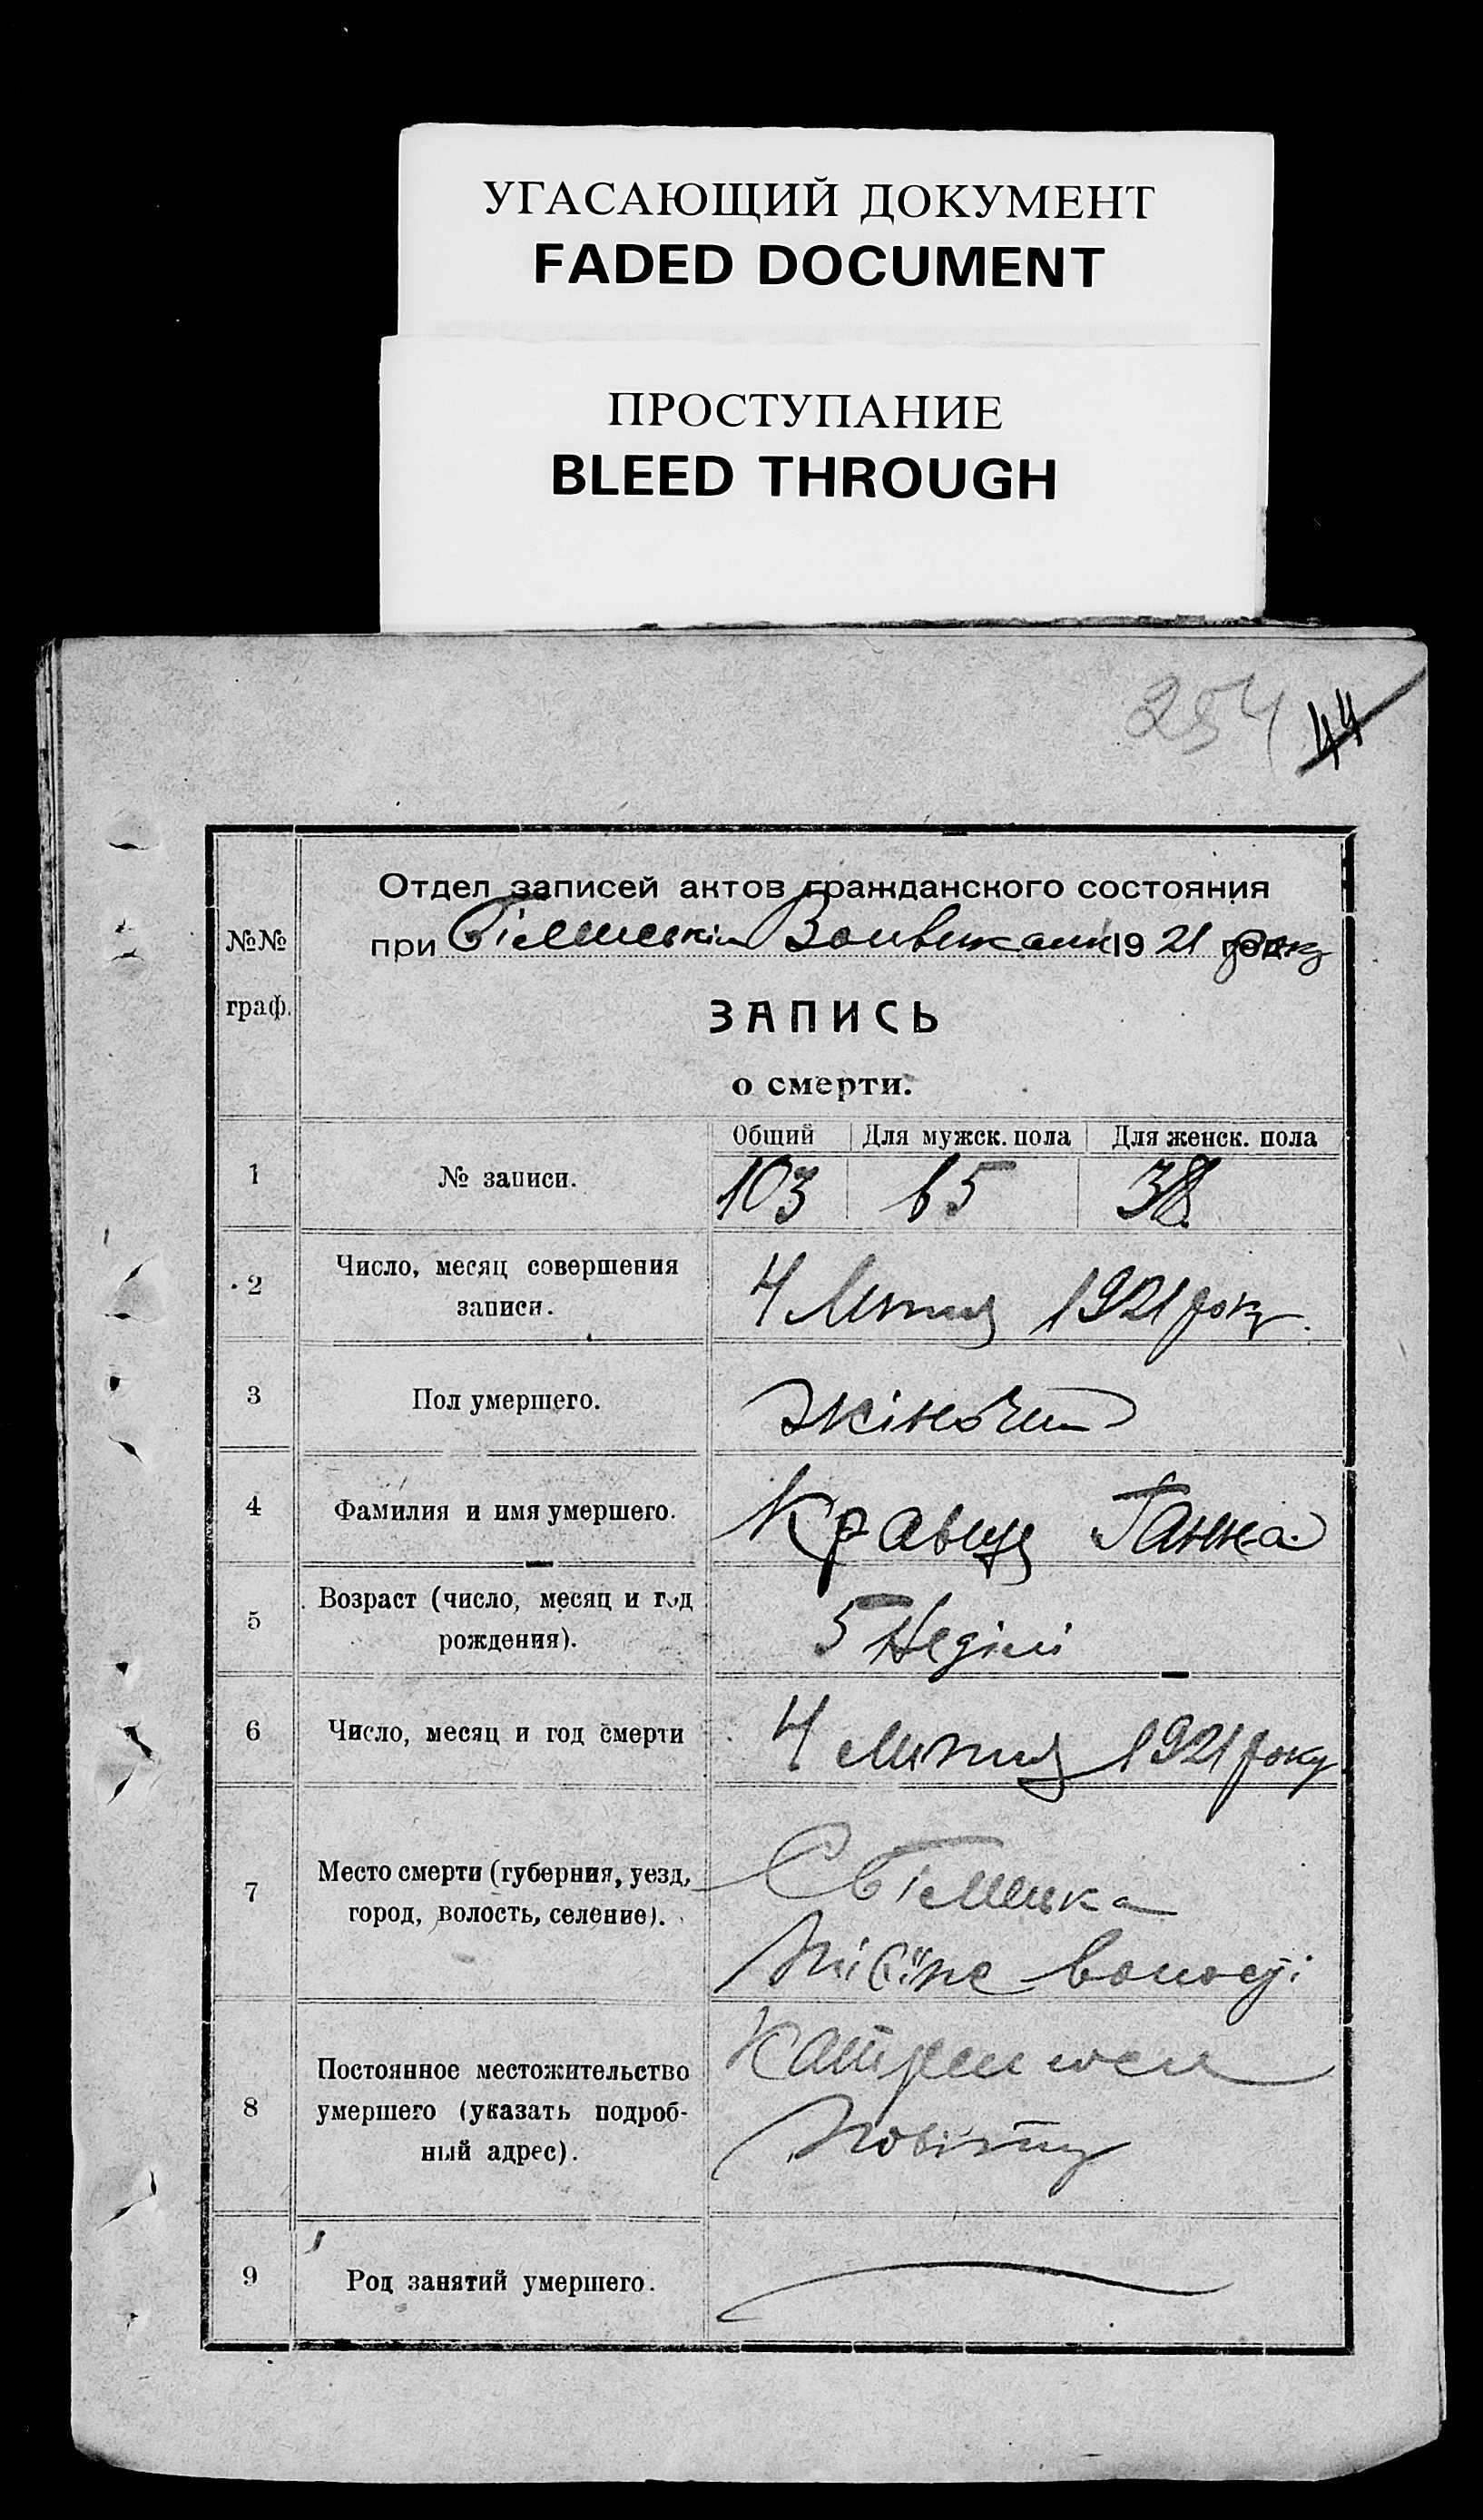 УГАСАЮЩИЙ ДОКУМЕНТ
FADED DOCUMENT
ПРОСТУПАНИЕ
BLEED THROUGH
254 44
Отдел записей актов гражданского состояния
№№
при 1921 року
граф.
ЗАПИСЬ
о смерти.
Общий Для мужск. пола Для женск. пола
1 № записи. 103 65 38
2 Число, месяц совершения
записи.
4 Липня 1921 року.
3 Пол умершего. жіночий
4 Фамилия и имя умершего. Кравець Ганна
5 Возраст (число, месяц и год
рождения).
5 Неділі
6 Число, месяц и год смерти 4 Липня 1921 року
7 Место смерти (губерния, уезд,
город, волость, селение).
волості
8 Постоянное местожительство
умершего (указать подроб-
ный адрес).
повіту
9 Род занятий умершего.